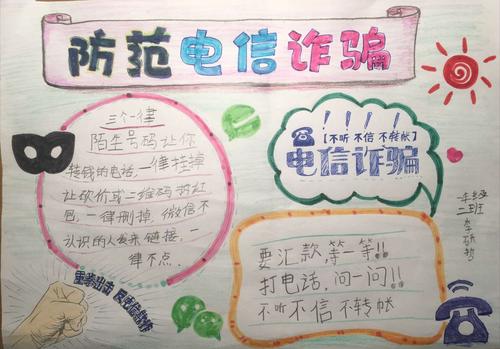 防范电信诈骗
三个一律
陌生号码让你
转钱的电话,一律挂掉
让砍价或二维码扫红
包,一律删掉,微信不
认识的人发来链接,一
律不点.
重拳出击
!!!!
【不听 不信 不转帐】
电信诈骗
二班
要汇款,等一等!!
打电话,问一问!!
不听不信不转帐